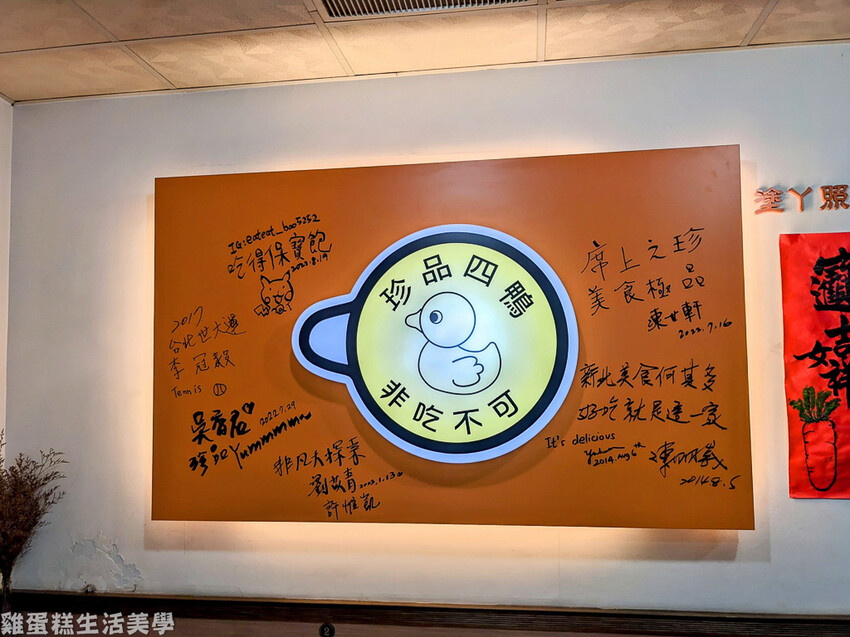 珍品四鴨
非吃不可
IG:eateat_boo5252
吃得保寶飽
2023.8.19
2017
台北世大運
李冠毅
Tennis
2022.7.29
珍品Yummmmm~
非凡大探索
許惟凱
席上之珍
美食極品
2022.7.16
新北美食何其多
好吃就是這一家
It's delicious
2014.Aug 6th
2014.8.5
塗丫照
吉祥
雞蛋糕生活美學
2